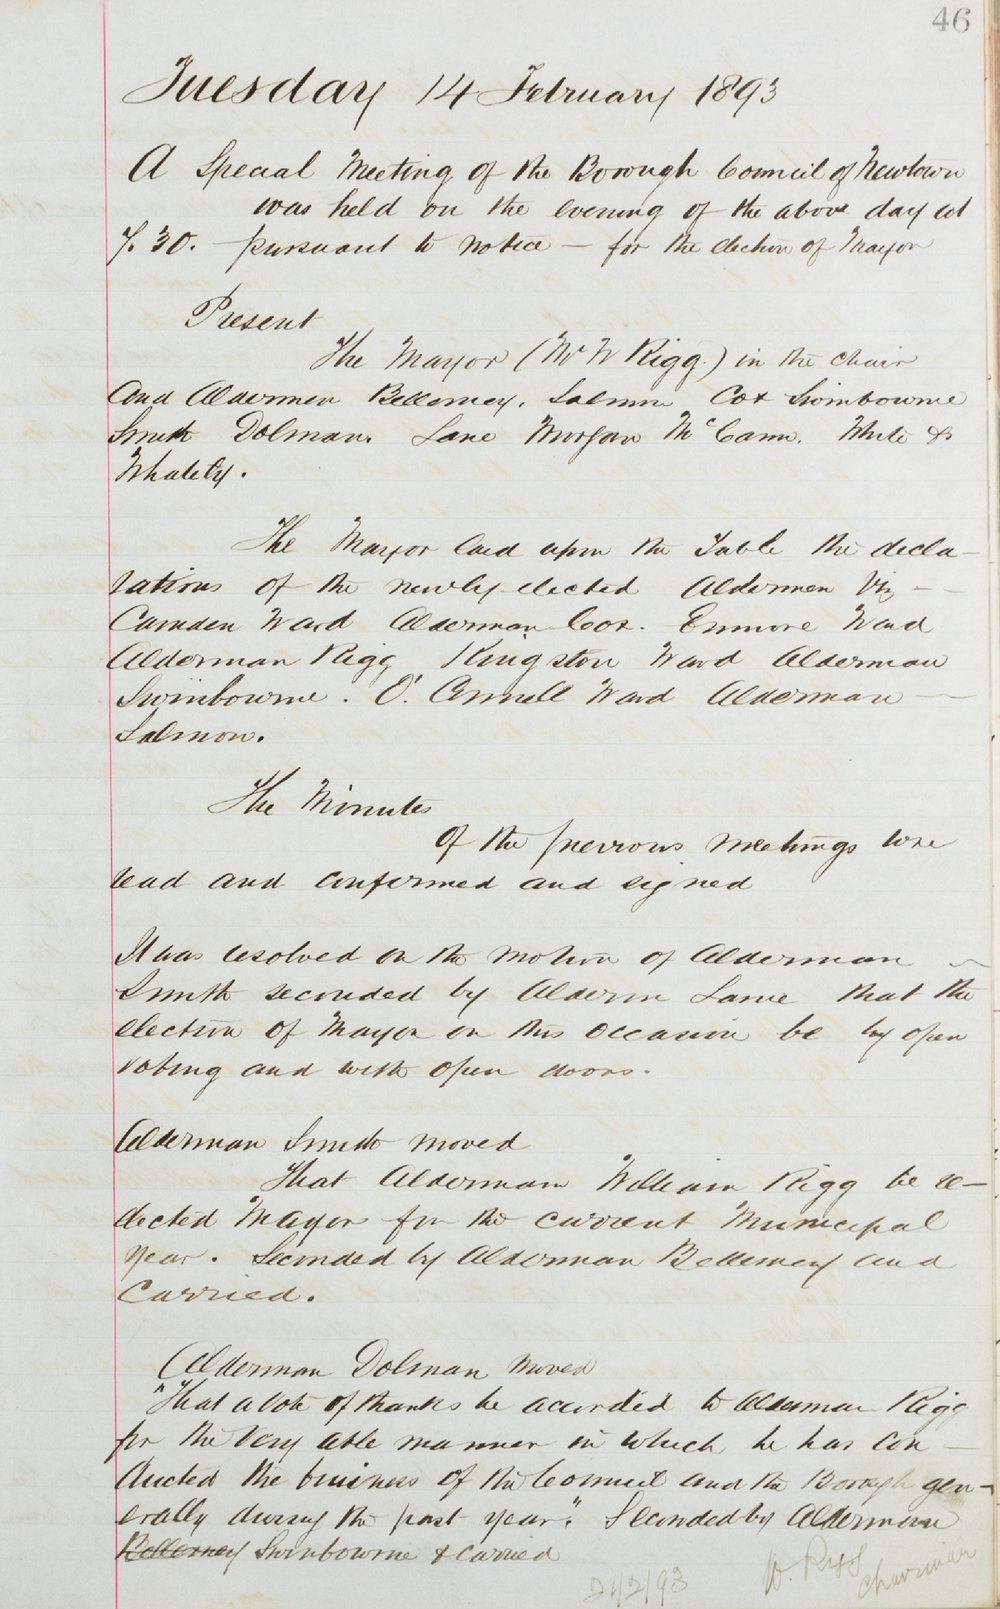 46
Tuesday 14 February 1893
A Special Meeting of the Borough Council of Newtown
was held on the evening of the above day at
7.30. pursuant to notice — for the election of Mayor
Present
The Mayor (Mr W Rigg.) in the chair
and Aldermen Bellemey. Salmon Cox Swinbourne
Smith Dolman. Lane Morgan McCann. White &
Whately.
The Mayor laid upon the Table the decla-
rations of the newly elected Aldermen Viz —
Camden Ward Alderman Cox. Enmore Ward
Alderman Rigg Kingston Ward Alderman
Swinbourne. O'Connell Ward Alderman —
Salmon.
The Minutes
of the previous meetings were
read and confirmed and signed
It was resolved on the motion of Alderman
Smith seconded by Alderm Lane that the
election of Mayor on this occasion be by open
voting and with open doors.
Alderman Smith moved
That Alderman William Rigg be re-
elected Mayor for the current Municipal
year. Seconded by Alderman Bellemey and
Carried.
Alderman Dolman moved
"That a vote of thanks be accorded to Alderman Rigg
for the very able manner in which he has con —
ducted the business of the Council and the Borough gen-
erally during the past year". Seconded by Alderman
Bellemey Swinbourne & carried
21/2/93 W. Rigg Chairman